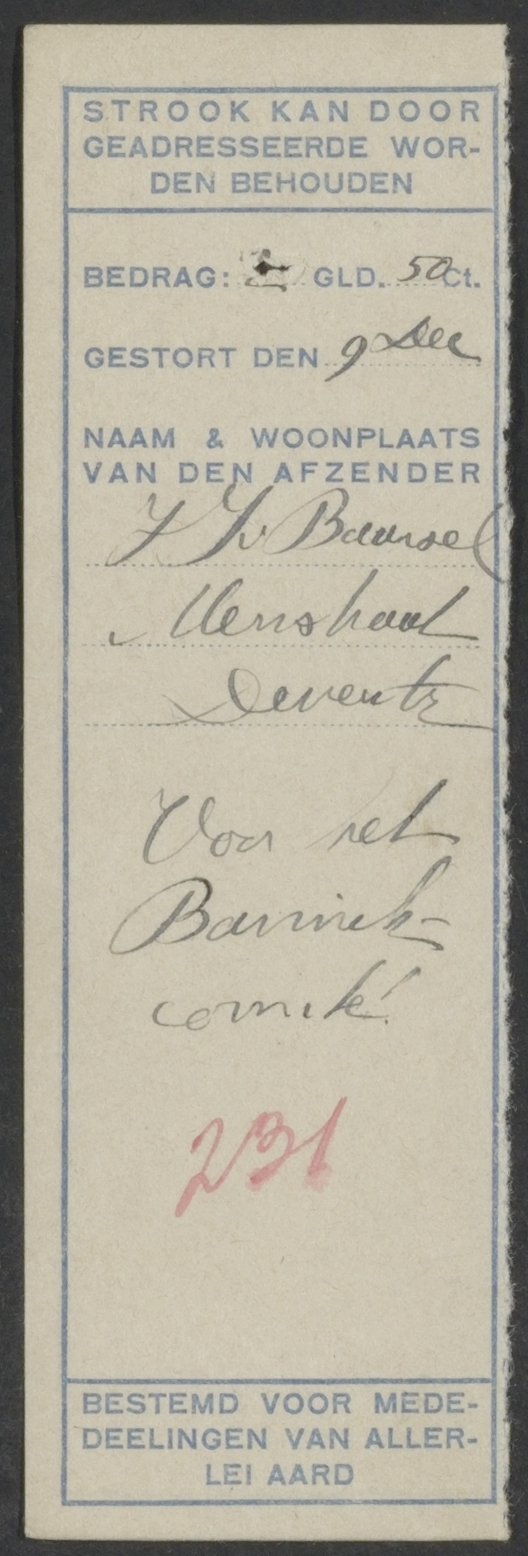 STROOK KAN DOOR
GEADRESSEERDE WOR-
DEN BEHOUDEN
BEDRAG: GLD. 50 Ct.
GESTORT DEN 9 Dec
NAAM & WOONPLAATS
VAN DEN AFZENDER
Deventr
Voor het
comité
231
BESTEMD VOOR MEDE-
DEELINGEN VAN ALLER-
LEI AARD